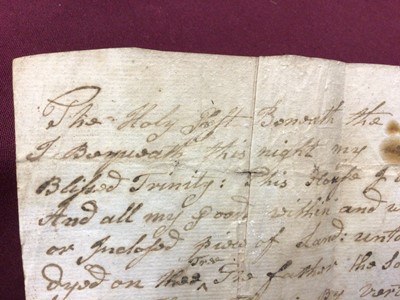 The Holy Gift Beneath the
I Bequeath this night my
Blessed Trinity: This House
And all my good within and w
or Inclosed Piece of Land: unto
Tree
dyed on the The father the so